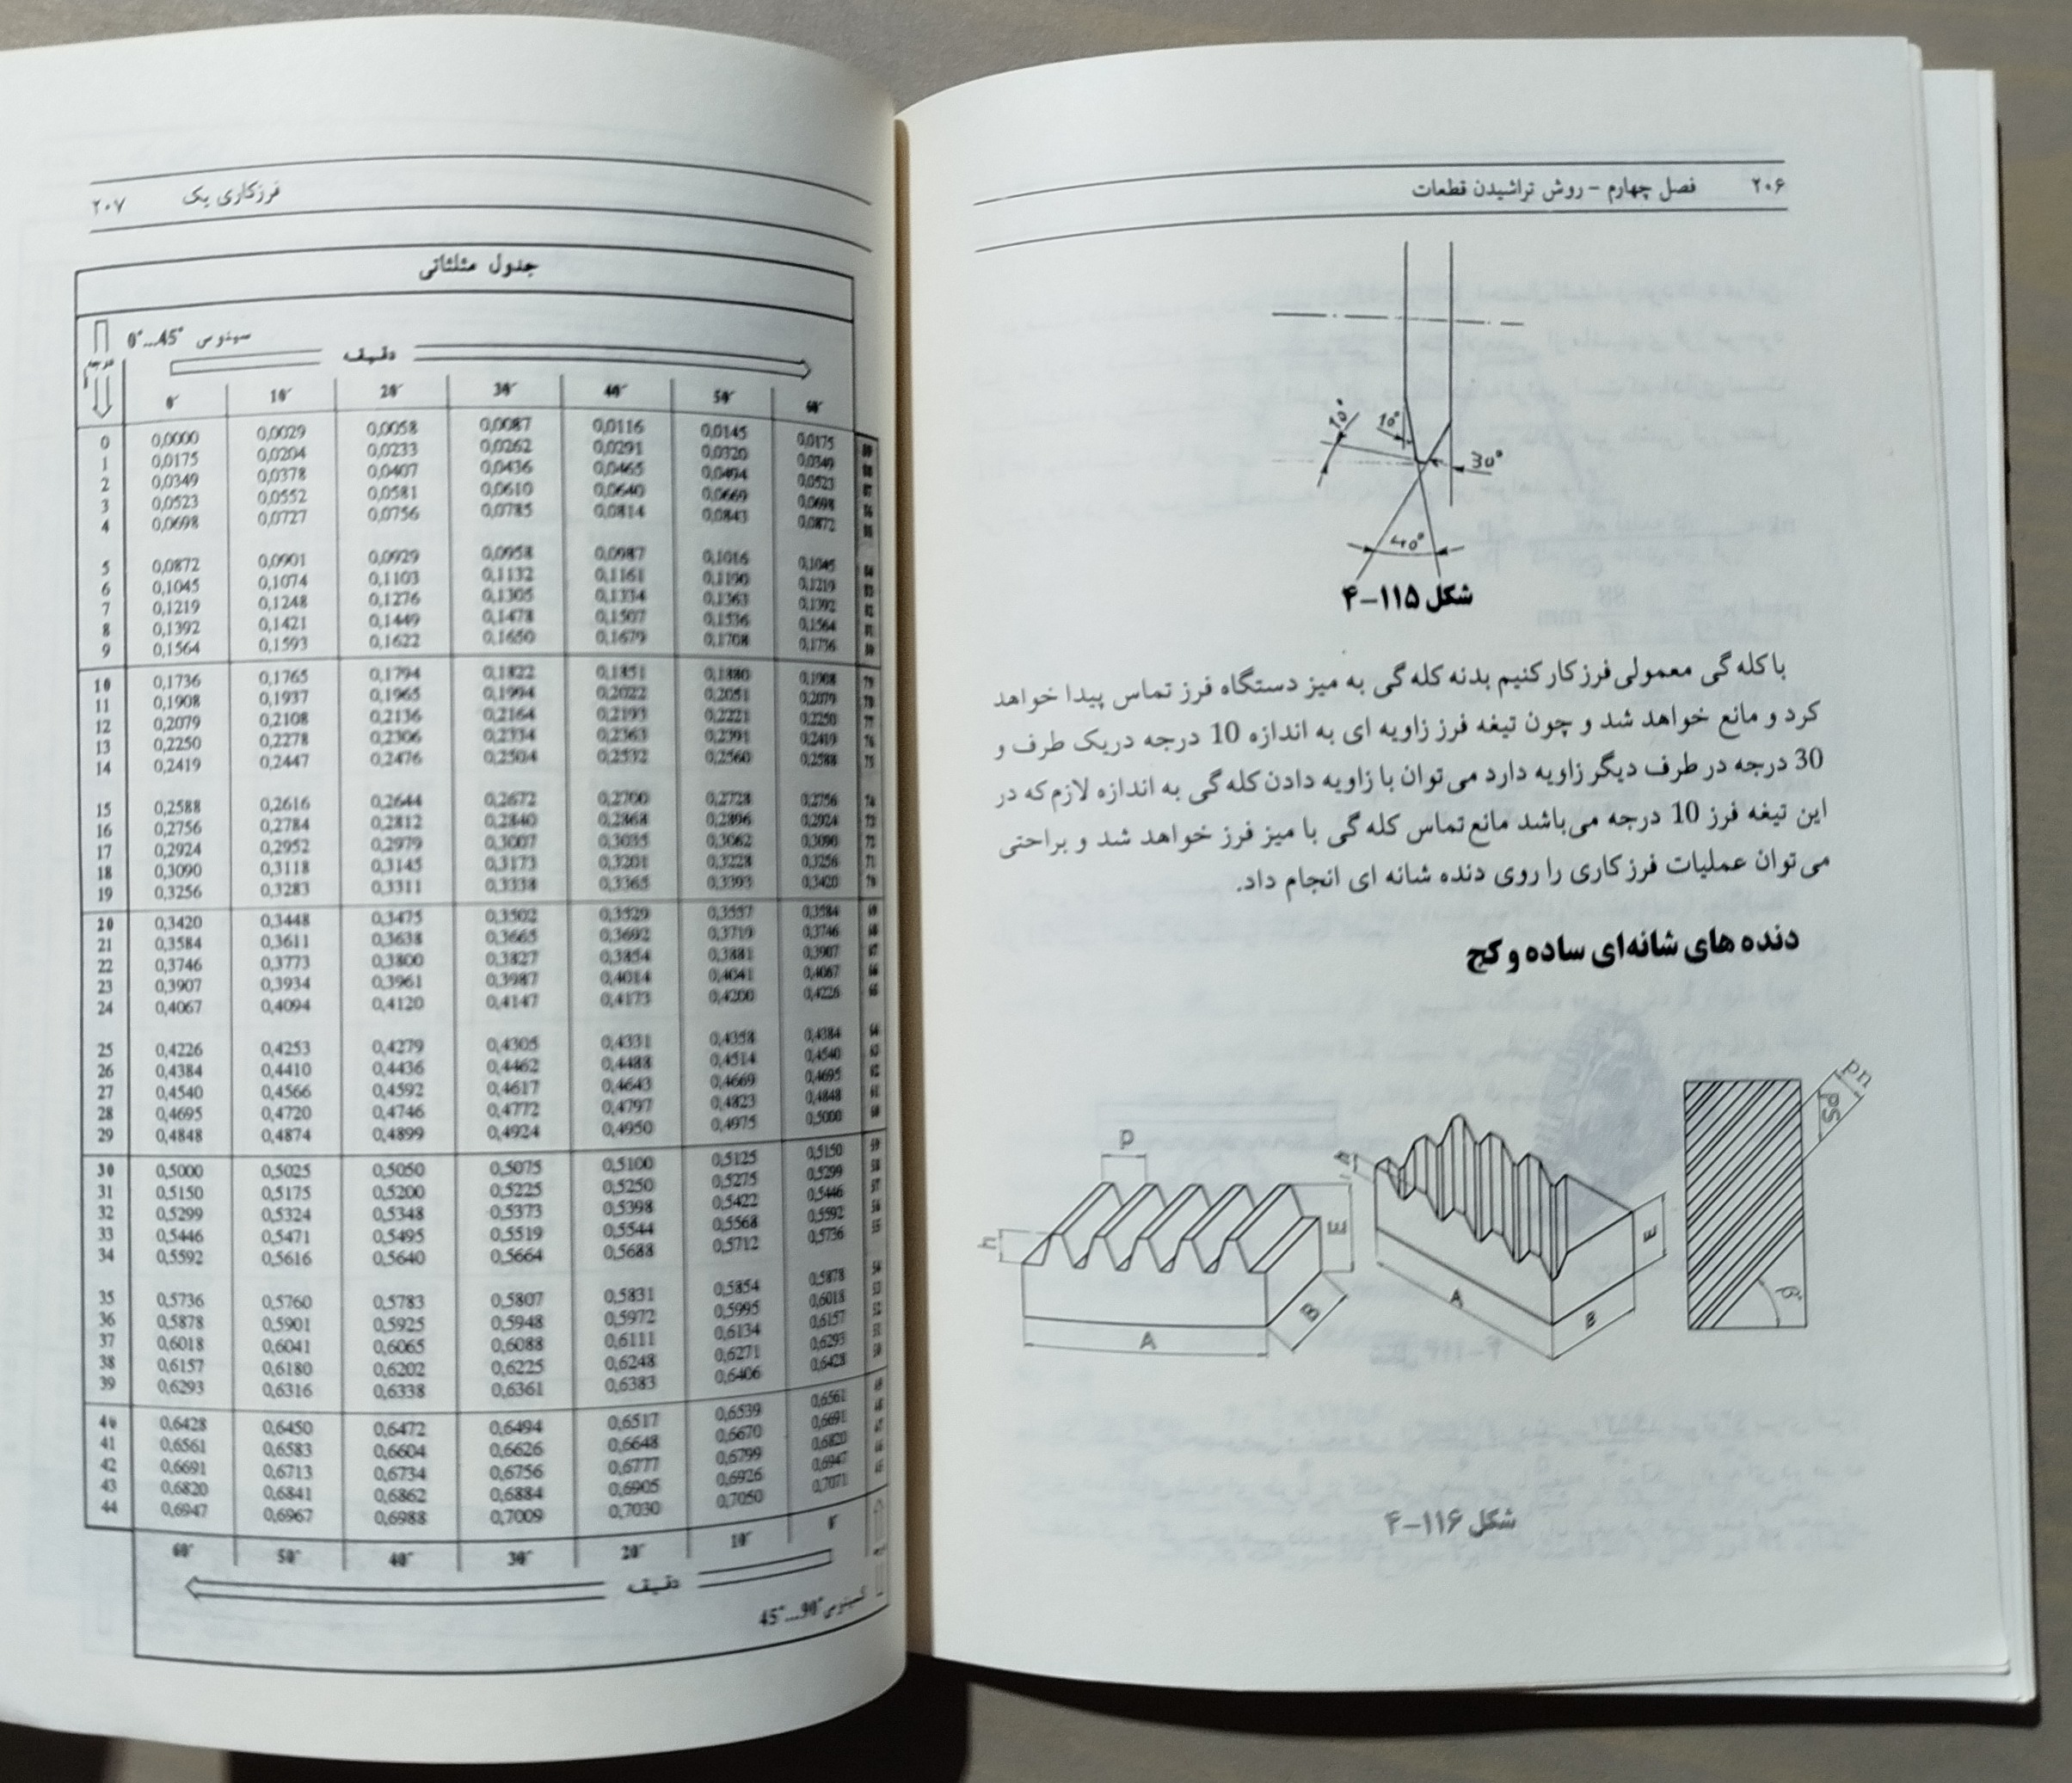 ۲۰۶ فصل چهارم - روش تراشیدن قطعات
10°
10°
30°
40°
شکل ۱۱۵-۴
با کله گی معمولی فرز کار کنیم بدنه کله گی به میز دستگاه فرز تماس پیدا خواهد
کرد و مانع خواهد شد و چون تیغه فرز زاویه ای به اندازه 10 درجه دریک طرف و
30 درجه در طرف دیگر زاویه دارد می توان با زاویه دادن کله گی به اندازه لازم که در
این تیغه فرز 10 درجه می باشد مانع تماس کله گی با میز فرز خواهد شد و براحتی
می توان عملیات فرز کاری را روی دنده شانه ای انجام داد.
دنده های شانه ای ساده و کج
P
h
E
B
A
h
E
A
B
pn
ps
β
شکل ۱۱۶-۴
فرزکاری یک ۲۰۷
جدول مثلثاتی
سینوس 0°...45°
درجه
دقیقه
0′ 10′ 20′ 30′ 40′ 50′ 60′
0 0,0000 0,0029 0,0058 0,0087 0,0116 0,0145 0,0175 89
1 0,0175 0,0204 0,0233 0,0262 0,0291 0,0320 0,0349 88
2 0,0349 0,0378 0,0407 0,0436 0,0465 0,0494 0,0523 87
3 0,0523 0,0552 0,0581 0,0610 0,0640 0,0669 0,0698 86
4 0,0698 0,0727 0,0756 0,0785 0,0814 0,0843 0,0872 85
5 0,0872 0,0901 0,0929 0,0958 0,0987 0,1016 0,1045 84
6 0,1045 0,1074 0,1103 0,1132 0,1161 0,1190 0,1219 83
7 0,1219 0,1248 0,1276 0,1305 0,1334 0,1363 0,1392 82
8 0,1392 0,1421 0,1449 0,1478 0,1507 0,1536 0,1564 81
9 0,1564 0,1593 0,1622 0,1650 0,1679 0,1708 0,1736 80
10 0,1736 0,1765 0,1794 0,1822 0,1851 0,1880 0,1908 79
11 0,1908 0,1937 0,1965 0,1994 0,2022 0,2051 0,2079 78
12 0,2079 0,2108 0,2136 0,2164 0,2193 0,2221 0,2250 77
13 0,2250 0,2278 0,2306 0,2334 0,2363 0,2391 0,2419 76
14 0,2419 0,2447 0,2476 0,2504 0,2532 0,2560 0,2588 75
15 0,2588 0,2616 0,2644 0,2672 0,2700 0,2728 0,2756 74
16 0,2756 0,2784 0,2812 0,2840 0,2868 0,2896 0,2924 73
17 0,2924 0,2952 0,2979 0,3007 0,3035 0,3062 0,3090 72
18 0,3090 0,3118 0,3145 0,3173 0,3201 0,3228 0,3256 71
19 0,3256 0,3283 0,3311 0,3338 0,3365 0,3393 0,3420 70
20 0,3420 0,3448 0,3475 0,3502 0,3529 0,3557 0,3584 69
21 0,3584 0,3611 0,3638 0,3665 0,3692 0,3719 0,3746 68
22 0,3746 0,3773 0,3800 0,3827 0,3854 0,3881 0,3907 67
23 0,3907 0,3934 0,3961 0,3987 0,4014 0,4041 0,4067 66
24 0,4067 0,4094 0,4120 0,4147 0,4173 0,4200 0,4226 65
25 0,4226 0,4253 0,4279 0,4305 0,4331 0,4358 0,4384 64
26 0,4384 0,4410 0,4436 0,4462 0,4488 0,4514 0,4540 63
27 0,4540 0,4566 0,4592 0,4617 0,4643 0,4669 0,4695 62
28 0,4695 0,4720 0,4746 0,4772 0,4797 0,4823 0,4848 61
29 0,4848 0,4874 0,4899 0,4924 0,4950 0,4975 0,5000 60
30 0,5000 0,5025 0,5050 0,5075 0,5100 0,5125 0,5150 59
31 0,5150 0,5175 0,5200 0,5225 0,5250 0,5275 0,5299 58
32 0,5299 0,5324 0,5348 0,5373 0,5398 0,5422 0,5446 57
33 0,5446 0,5471 0,5495 0,5519 0,5544 0,5568 0,5592 56
34 0,5592 0,5616 0,5640 0,5664 0,5688 0,5712 0,5736 55
35 0,5736 0,5760 0,5783 0,5807 0,5831 0,5854 0,5878 54
36 0,5878 0,5901 0,5925 0,5948 0,5972 0,5995 0,6018 53
37 0,6018 0,6041 0,6065 0,6088 0,6111 0,6134 0,6157 52
38 0,6157 0,6180 0,6202 0,6225 0,6248 0,6271 0,6293 51
39 0,6293 0,6316 0,6338 0,6361 0,6383 0,6406 0,6428 50
40 0,6428 0,6450 0,6472 0,6494 0,6517 0,6539 0,6561 49
41 0,6561 0,6583 0,6604 0,6626 0,6648 0,6670 0,6691 48
42 0,6691 0,6713 0,6734 0,6756 0,6777 0,6799 0,6820 47
43 0,6820 0,6841 0,6862 0,6884 0,6905 0,6926 0,6947 46
44 0,6947 0,6967 0,6988 0,7009 0,7030 0,7050 0,7071 45
60′ 50′ 40′ 30′ 20′ 10′ 0′
دقیقه
کسینوس 45°...90°